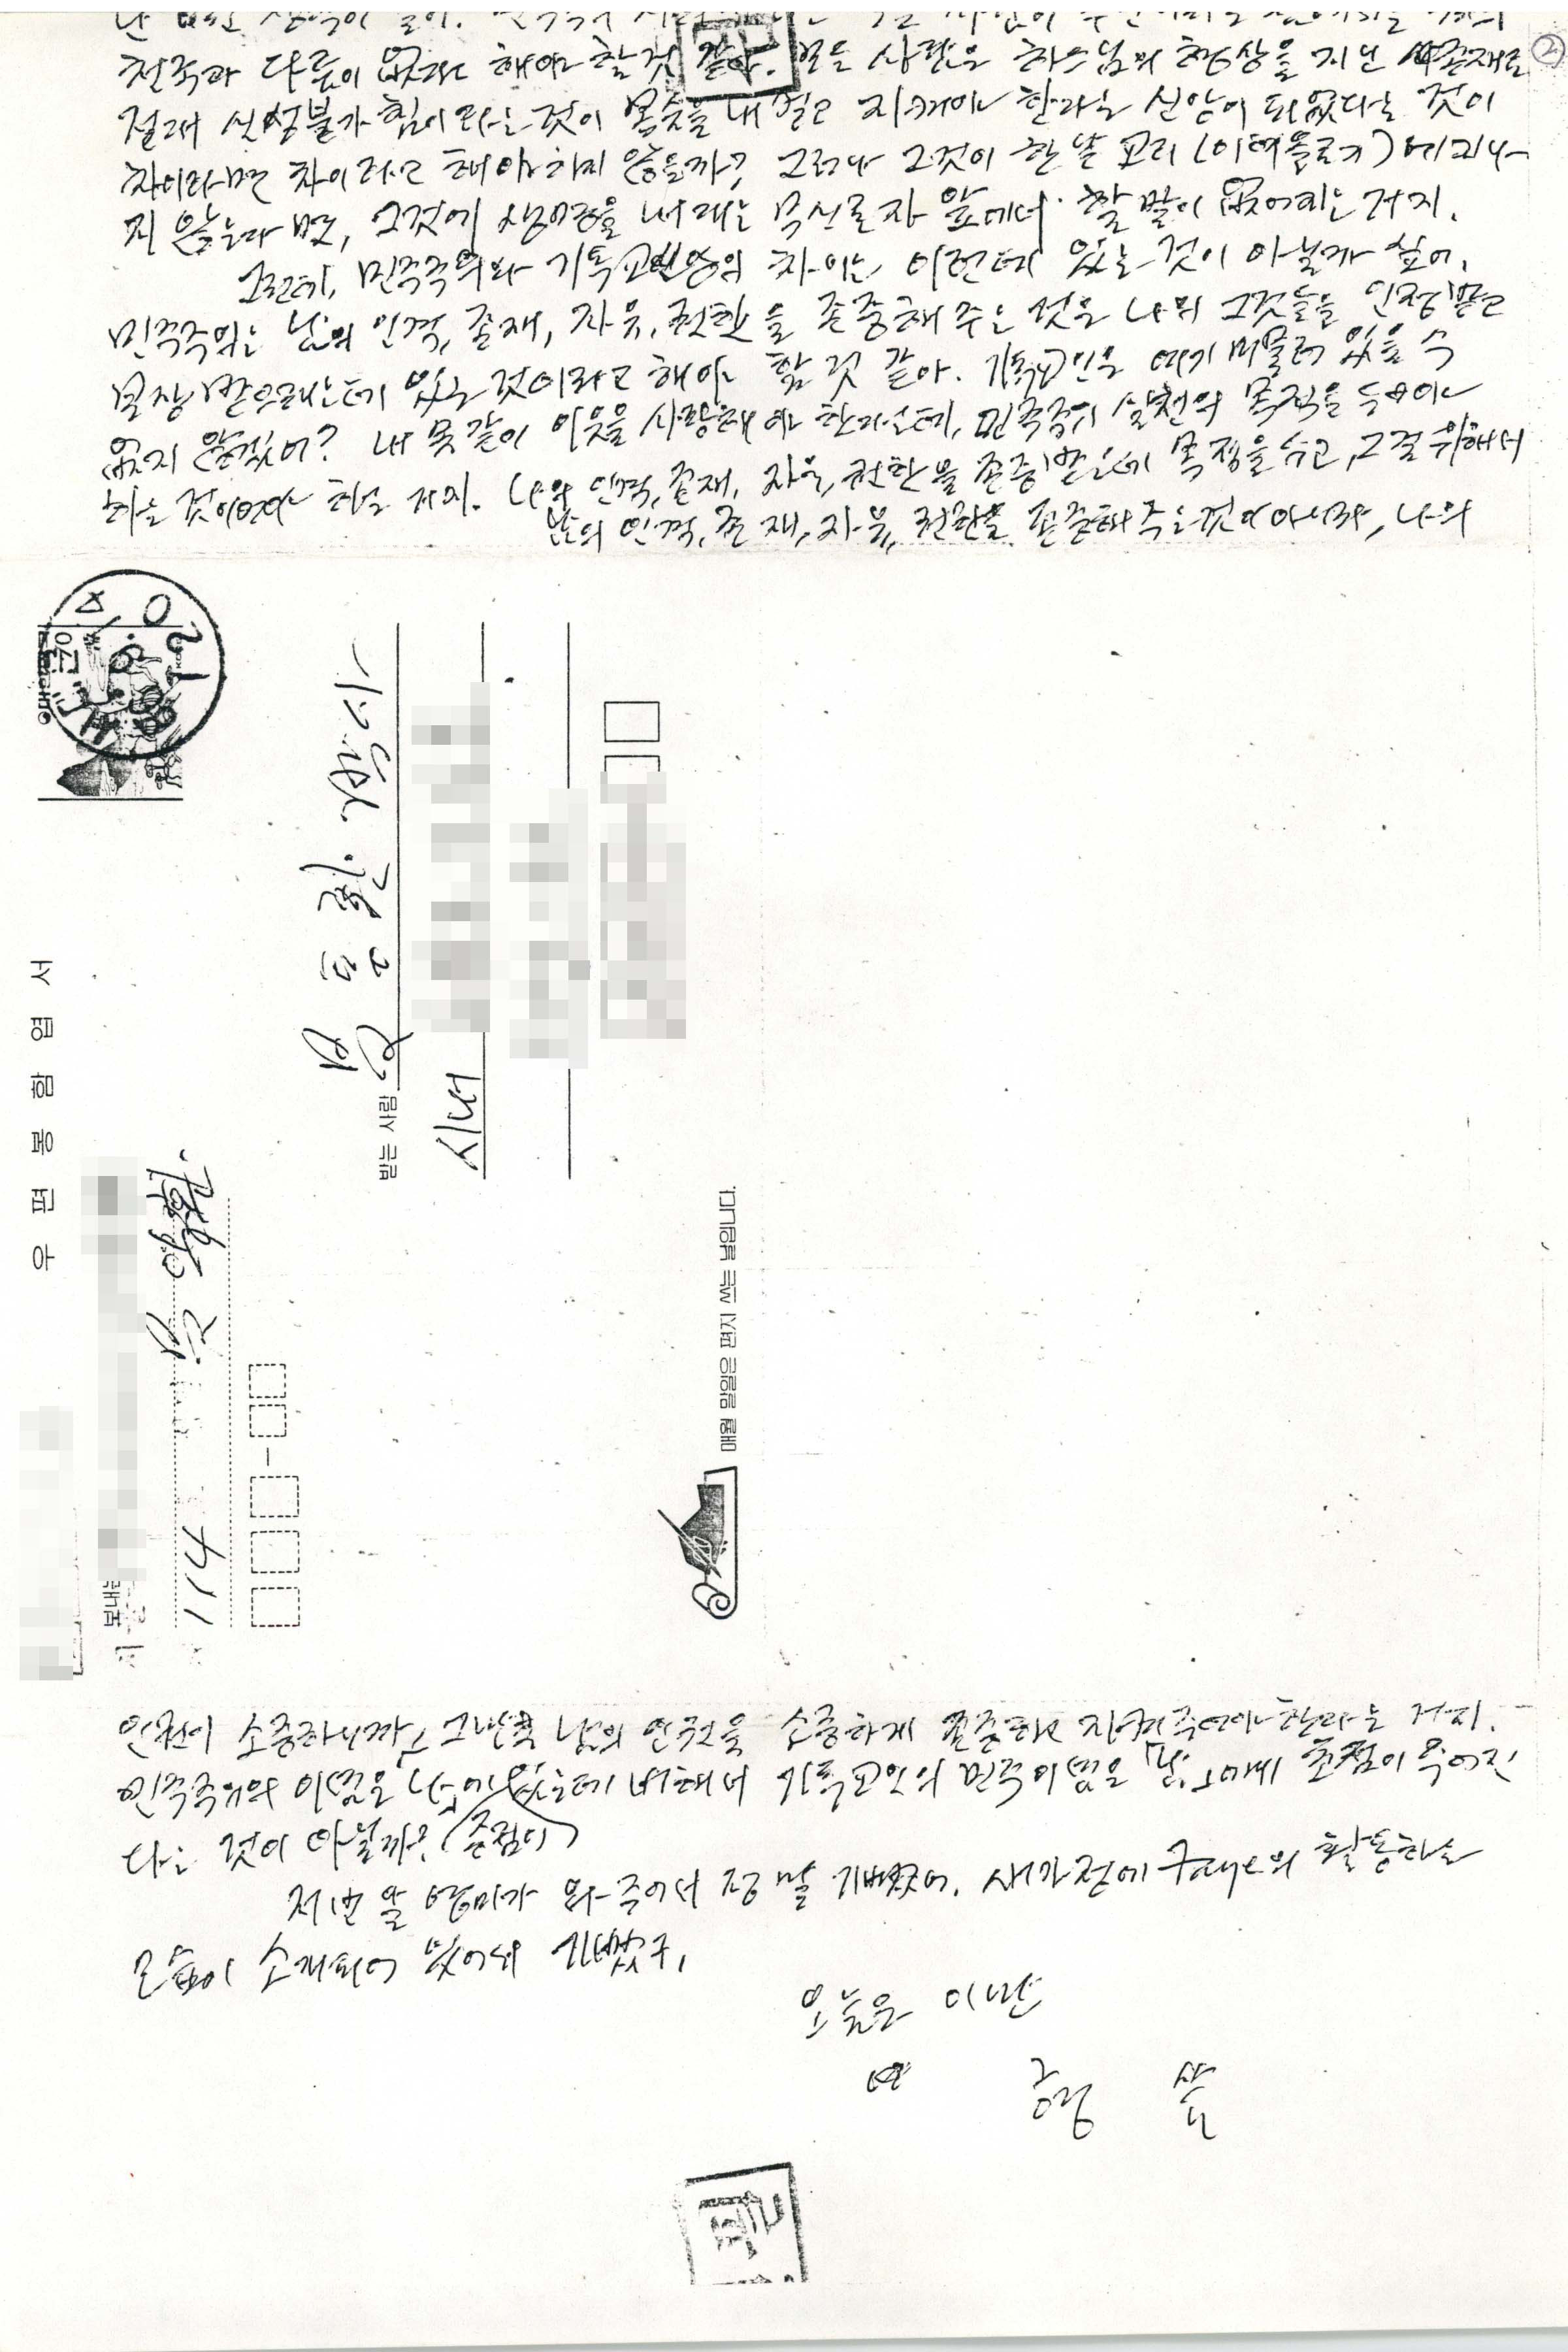 ②
천국과 다름이 없다고 해야 할 것 같아. 모든 사람은 하느님의 형상을 지닌 존재로
절대 신성불가침이라는 것이 목숨을 내걸고 지켜야 한다는 신앙이 되었다는 것이
차이라면 차이라고 해야 하지 않을까? 그러나 그것이 한낱 교리(이데올로기)에 지나
지 않는다면, 그것에 생명을 내대는 무신론자 앞에서 할 말이 없어지는 거지.
그런데, 민주주의와 기독교신앙의 차이는 이런데 있는 것이 아닐까 싶어.
민주주의는 남의 인격, 존재, 자유, 권한을 존중해 주는 것은 나의 그것들을 인정받고
보장 받으려는데 있는 것이라고 해야 할 것 같아. 기독교인은 여기 머물러 있을 수
없지 않겠어? 내 몸같이 이웃을 사랑해야 한다는데, 민주주의 실천의 목적을 두어야
하는 것이어야 하는 거지. 나의 인격, 존재, 자유, 권한을 존중받는데 목적을 두고, 그걸 위해서
남의 인격, 존재, 자유, 권한을 존중해 주는 것이 아니라, 나의
우편봉함엽서
보내는
114
문
받는 사람
문
박용길
시내
매월 말일은 편지 쓰는 날입니다.
인권이 소중하니까, 그만큼 남의 인권을 소중하게 존중하고 지켜주어야 한다는 거지.
민주주의의 이념은 「나」에 있는데 비해서 기독교인의 민주이념은 「남」에게 초점이 주어진
다는 것이 아닐까? (중점이)
저번 날 영미가 와 주어서 정말 기뻤어. 새가정에 Faye의 활동하는
모습이 소개되어 있어서 기뻤구.
오늘은 이만